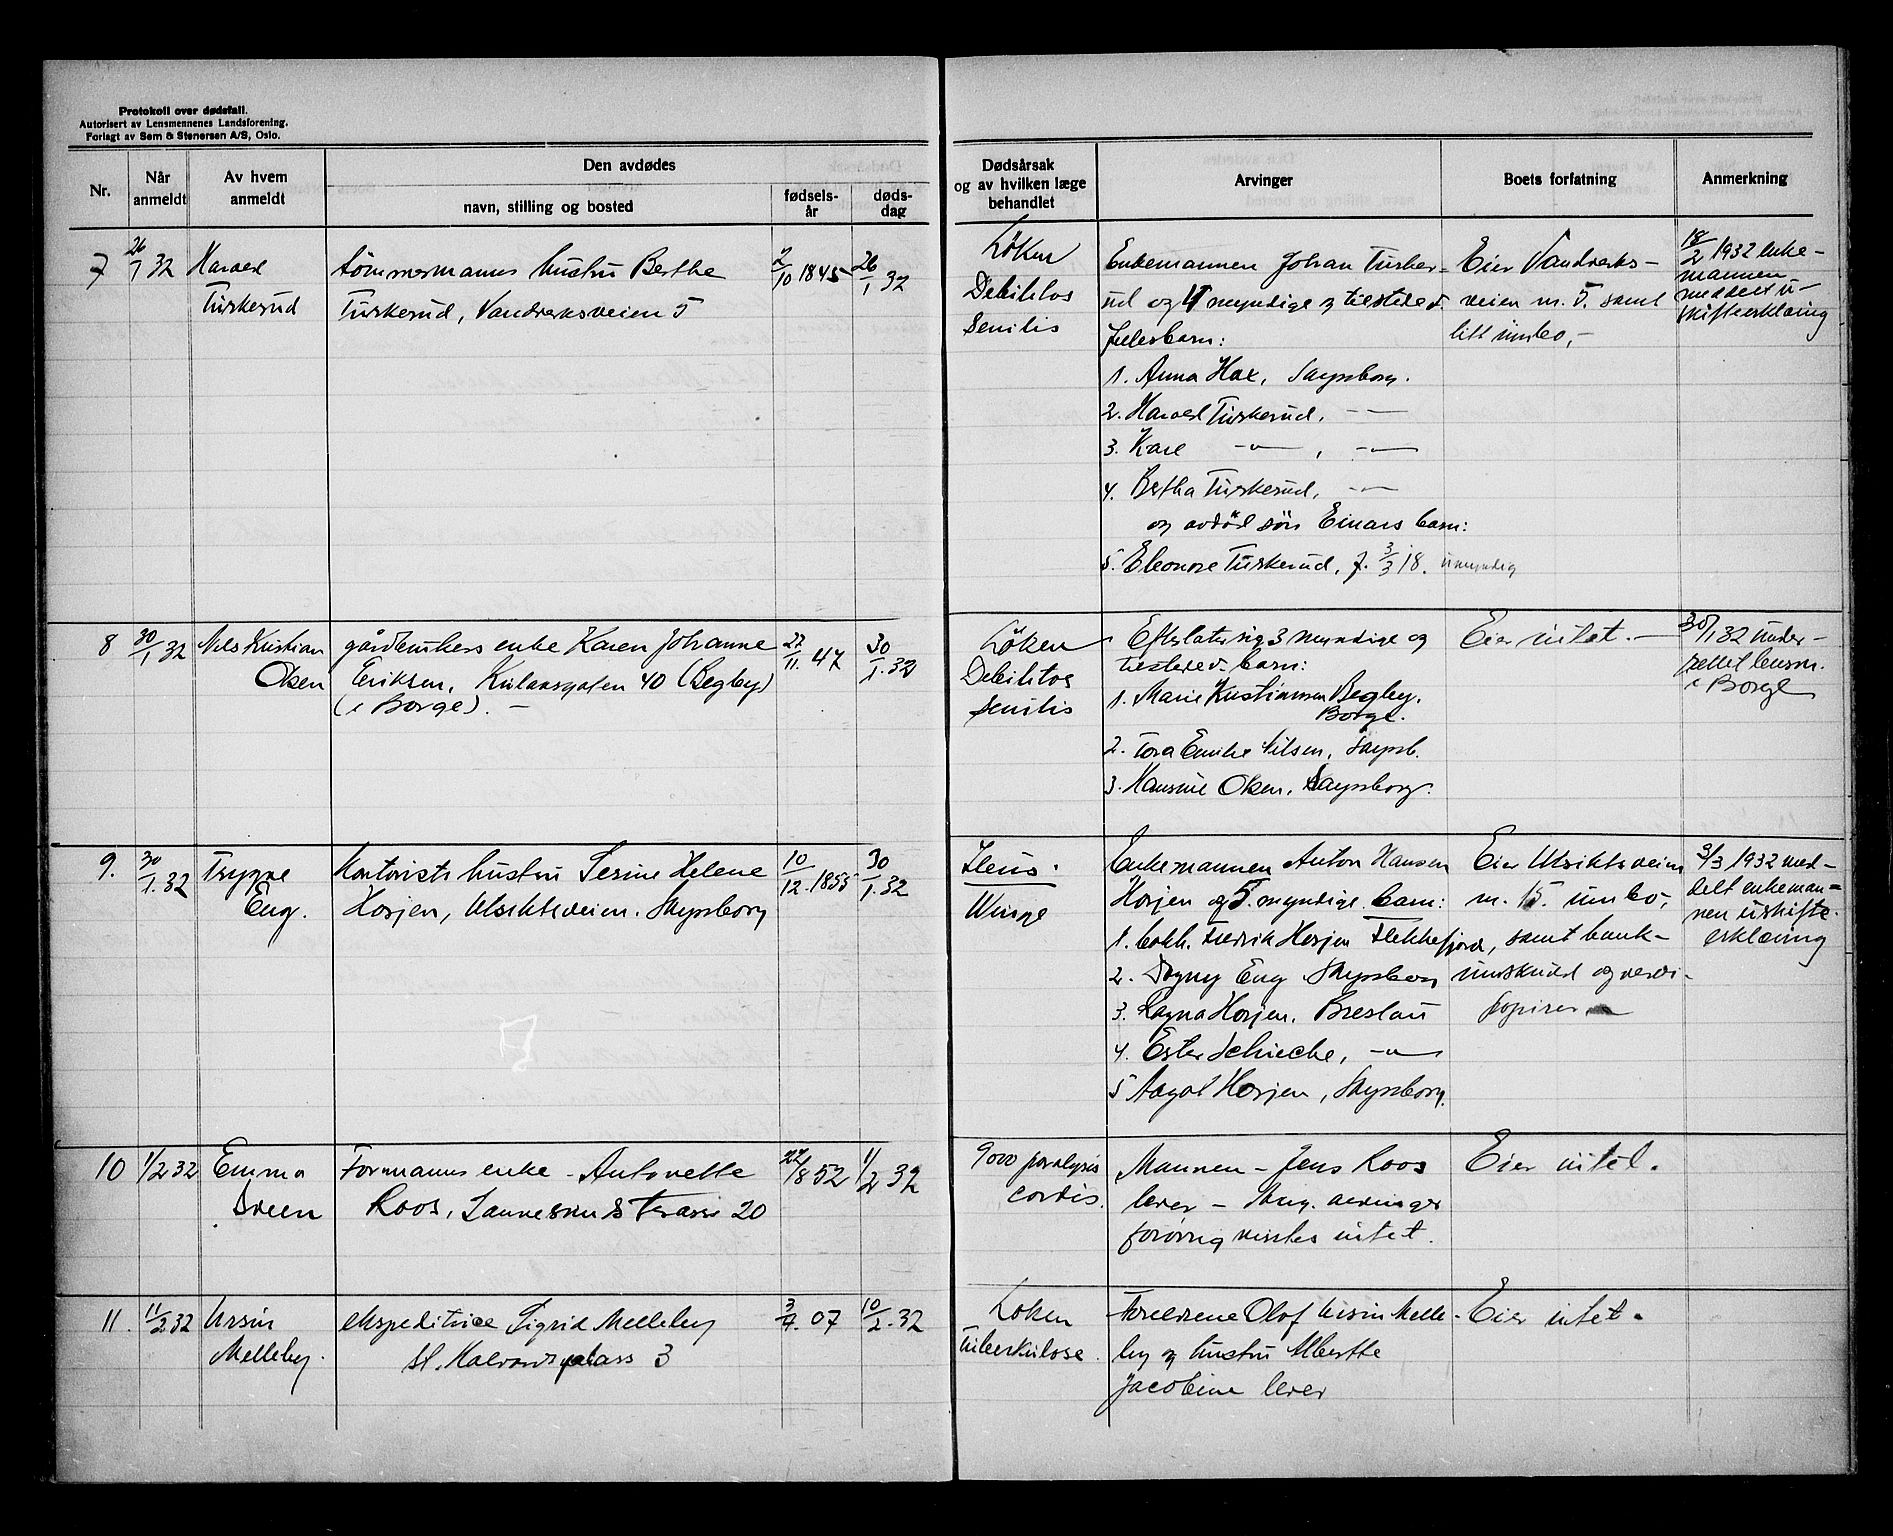 Protokoll over dødsfall.
Autorisert av Lensmennenes Landsforening.
Forlagt av Sem & Stenersen A/S, Oslo.
Nr.
Når anmeldt
Av hvem anmeldt
Den avdødes
navn, stilling og bosted
fødsels-år
døds-dag
Dødsårsak
og av hvilken læge
behandlet
Arvinger
Boets forfatning
Anmerkning
7
26/1 32
Harald
Turkerud
tømmermanns hustru Berthe
Turkerud, Vandverksveien 5
2/10 1845
26/1 32
Løken
Debilitas
Senilis
Enkemannen Johan Turker-
ud og 4 myndige og tilstedev.
fellesbarn:
1. Anna Hox, Sarpsborg.
2. Harald Turkerud, -"-
3. Karl -"- , -"-
4. Bertha Turkerud, -"-
og avdød søn Einars barn:
5. Eleonore Turkerud, f. 3/3 18. umyndig
Eier Vandverks-
veien nr. 5. samt
litt innbo,-
18/2 1932 enke-
mannen
meddelt u-
skifteerklæring
8
30/1 32
Nils Kristian
Olsen
gårdbrukers enke Karen Johanne
Eriksen, Kulåsgaten 40 (Begby)
(i Borge). -
22/11. 47
30/1. 32
Løken
Debilitas
senilis
Efterlater sig 3 myndige og
tilstedev. barn:
1. Marie Kristiansen Begby.
Borge.
2. Tora Emilie Nilsen, Sarpsb.
3. Hansine Olsen, Sarpsborg.
Eier intet. -
30/1 32 under-
rettet lensm.
i Borge
9.
30/1. 32
Trygve
Eng.
Kontorists hustru Serine Helene
Horjen, Ulriksveien. Sarpsborg
10/12. 1855
30/1. 32
Ileus.
Winge
Enkemannen Anton Hansen
Horjen og 5. myndige barn:
1. bokh. Fredrik Horjen Flekkefjord,
2. Dagny Eng Sarpsborg
3. Ragna Horjen. Breslau
4. Ester Schiecke, -"-
5 Aagot Horjen, Sarpsborg.
Eier Ulriksveien
nr. 15. innbo,
samt bank-
innskudd og verdi-
papirer
3/3 1932 med-
delt enkeman-
nen uskifte-
erklæring
10
1/2 32
Emma
Sveen
Formanns enke - Antonette
Roos, Sannesunds Terasse 20
22/8 52
1/2 32
paralysis
cordis.
Mannen - Jens Roos
lever -
forøvrig vistes intet.
Eier intet.
11.
11/2 32
Ursin
Melleby.
ekspeditrice Sigrid Melleby
St. Halvards plass 3
3/4. 07
10/2. 32
Løken
Tuberkulose.
Foreldrene Olof Ursin Melle-
by og hustru Albertte
Jacobine lever
Eier intet.